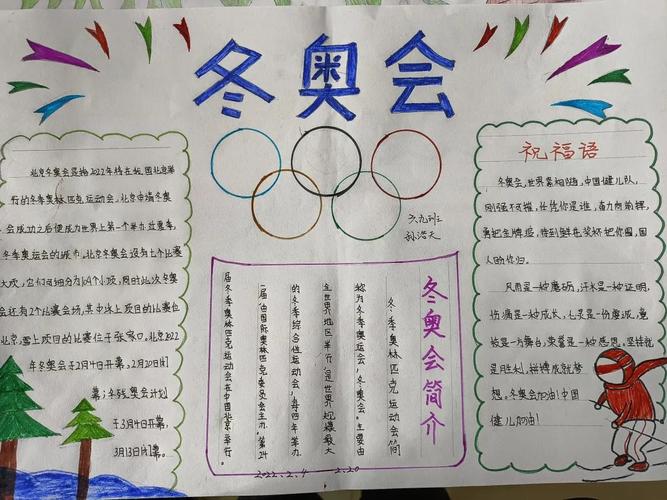 冬奥会
北京冬奥会是指2022年将在我国北京举
行的冬季奥林匹克运动会。北京申请冬奥
会成功之后便成为世界上第一个举办过夏季,
冬季奥运会的城市。北京冬奥会设有七个比赛
大项,它们可细分为64个小项,同时此次冬奥
会还有2个比赛会场,其中冰上项目的比赛位于
北京,雪上项目的比赛位于张家口。北京2022
年冬奥会于2月4日开幕,2月20日闭
幕;冬残奥会计划
于3月4日开幕,
3月13日闭幕。
六九班
孙浩文
冬奥会简介
冬季奥林匹克运动会简
称为冬季奥运会,冬奥会。主要由
全世界地区举行,是世界规模最大
的冬季综合性运动会,每四年举办
一届由国际奥林匹克委员会主办。第24
届冬季奥林匹克运动会在中国北京举行。
2022.2.4 2.20
祝福语
冬奥会,世界紧相随,中国健儿队,
刚强不可摧,任凭你是谁,奋力向前挥,
勇把金牌追,待到鲜花奖杯你围,国
人盼你归。
风雨是一种磨砺,汗水是一种证明,
伤痛是一种成长,心灵是一份真诚,竞
技是一方舞台,荣誉是一种感恩。坚持就
是胜利,拼搏成就梦
想。冬奥会加油!中国
健儿加油!